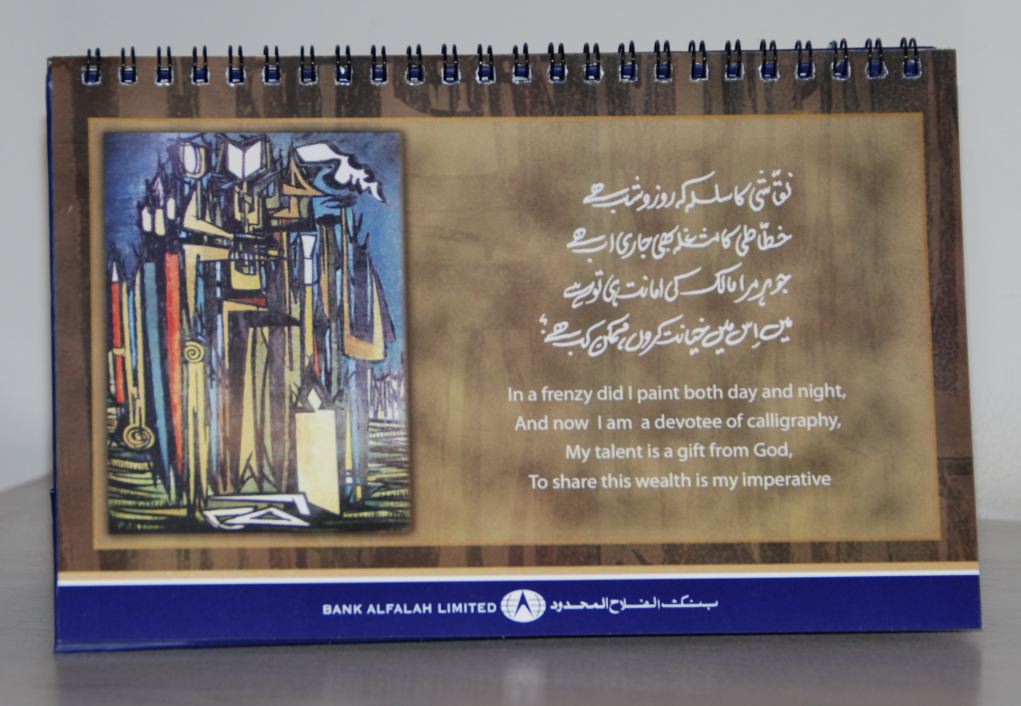 نقّاشی کا سلسلہ کہ روز و شب ہے
خطّاطی کا مشغلہ بھی جاری اب ہے
جوہر مرا مالک کی امانت ہی تو ہے
میں اِس میں خیانت کروں، ممکن کب ہے؟
In a frenzy did I paint both day and night,
And now I am a devotee of calligraphy,
My talent is a gift from God,
To share this wealth is my imperative
BANK ALFALAH LIMITED بنك الفلاح المحدود